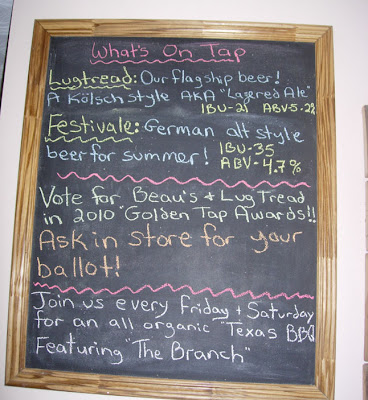 What's On Tap
Lugtread: Our flagship beer!
A Kölsch style AKA "Lagered Ale"
IBU-21 ABV-5.2%
Festivale: German alt style
beer for summer! IBU-35
ABV-4.7%
Vote for Beau's + Lug Tread
in 2010 "Golden Tap Awards!!
Ask in store for your
ballot!
Join us every Friday + Saturday
for an all organic "Texas BBQ
Featuring "The Branch"